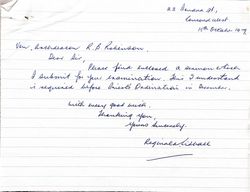 Ven. Archdeacon R. B. Robinson.
Dear Sir,
Please find enclosed a sermon which
I submit for your examination. This I understand
is required before Priest's Ordination in December.
With every good wish.
Thanking you,
Yours sincerely,
Reginald